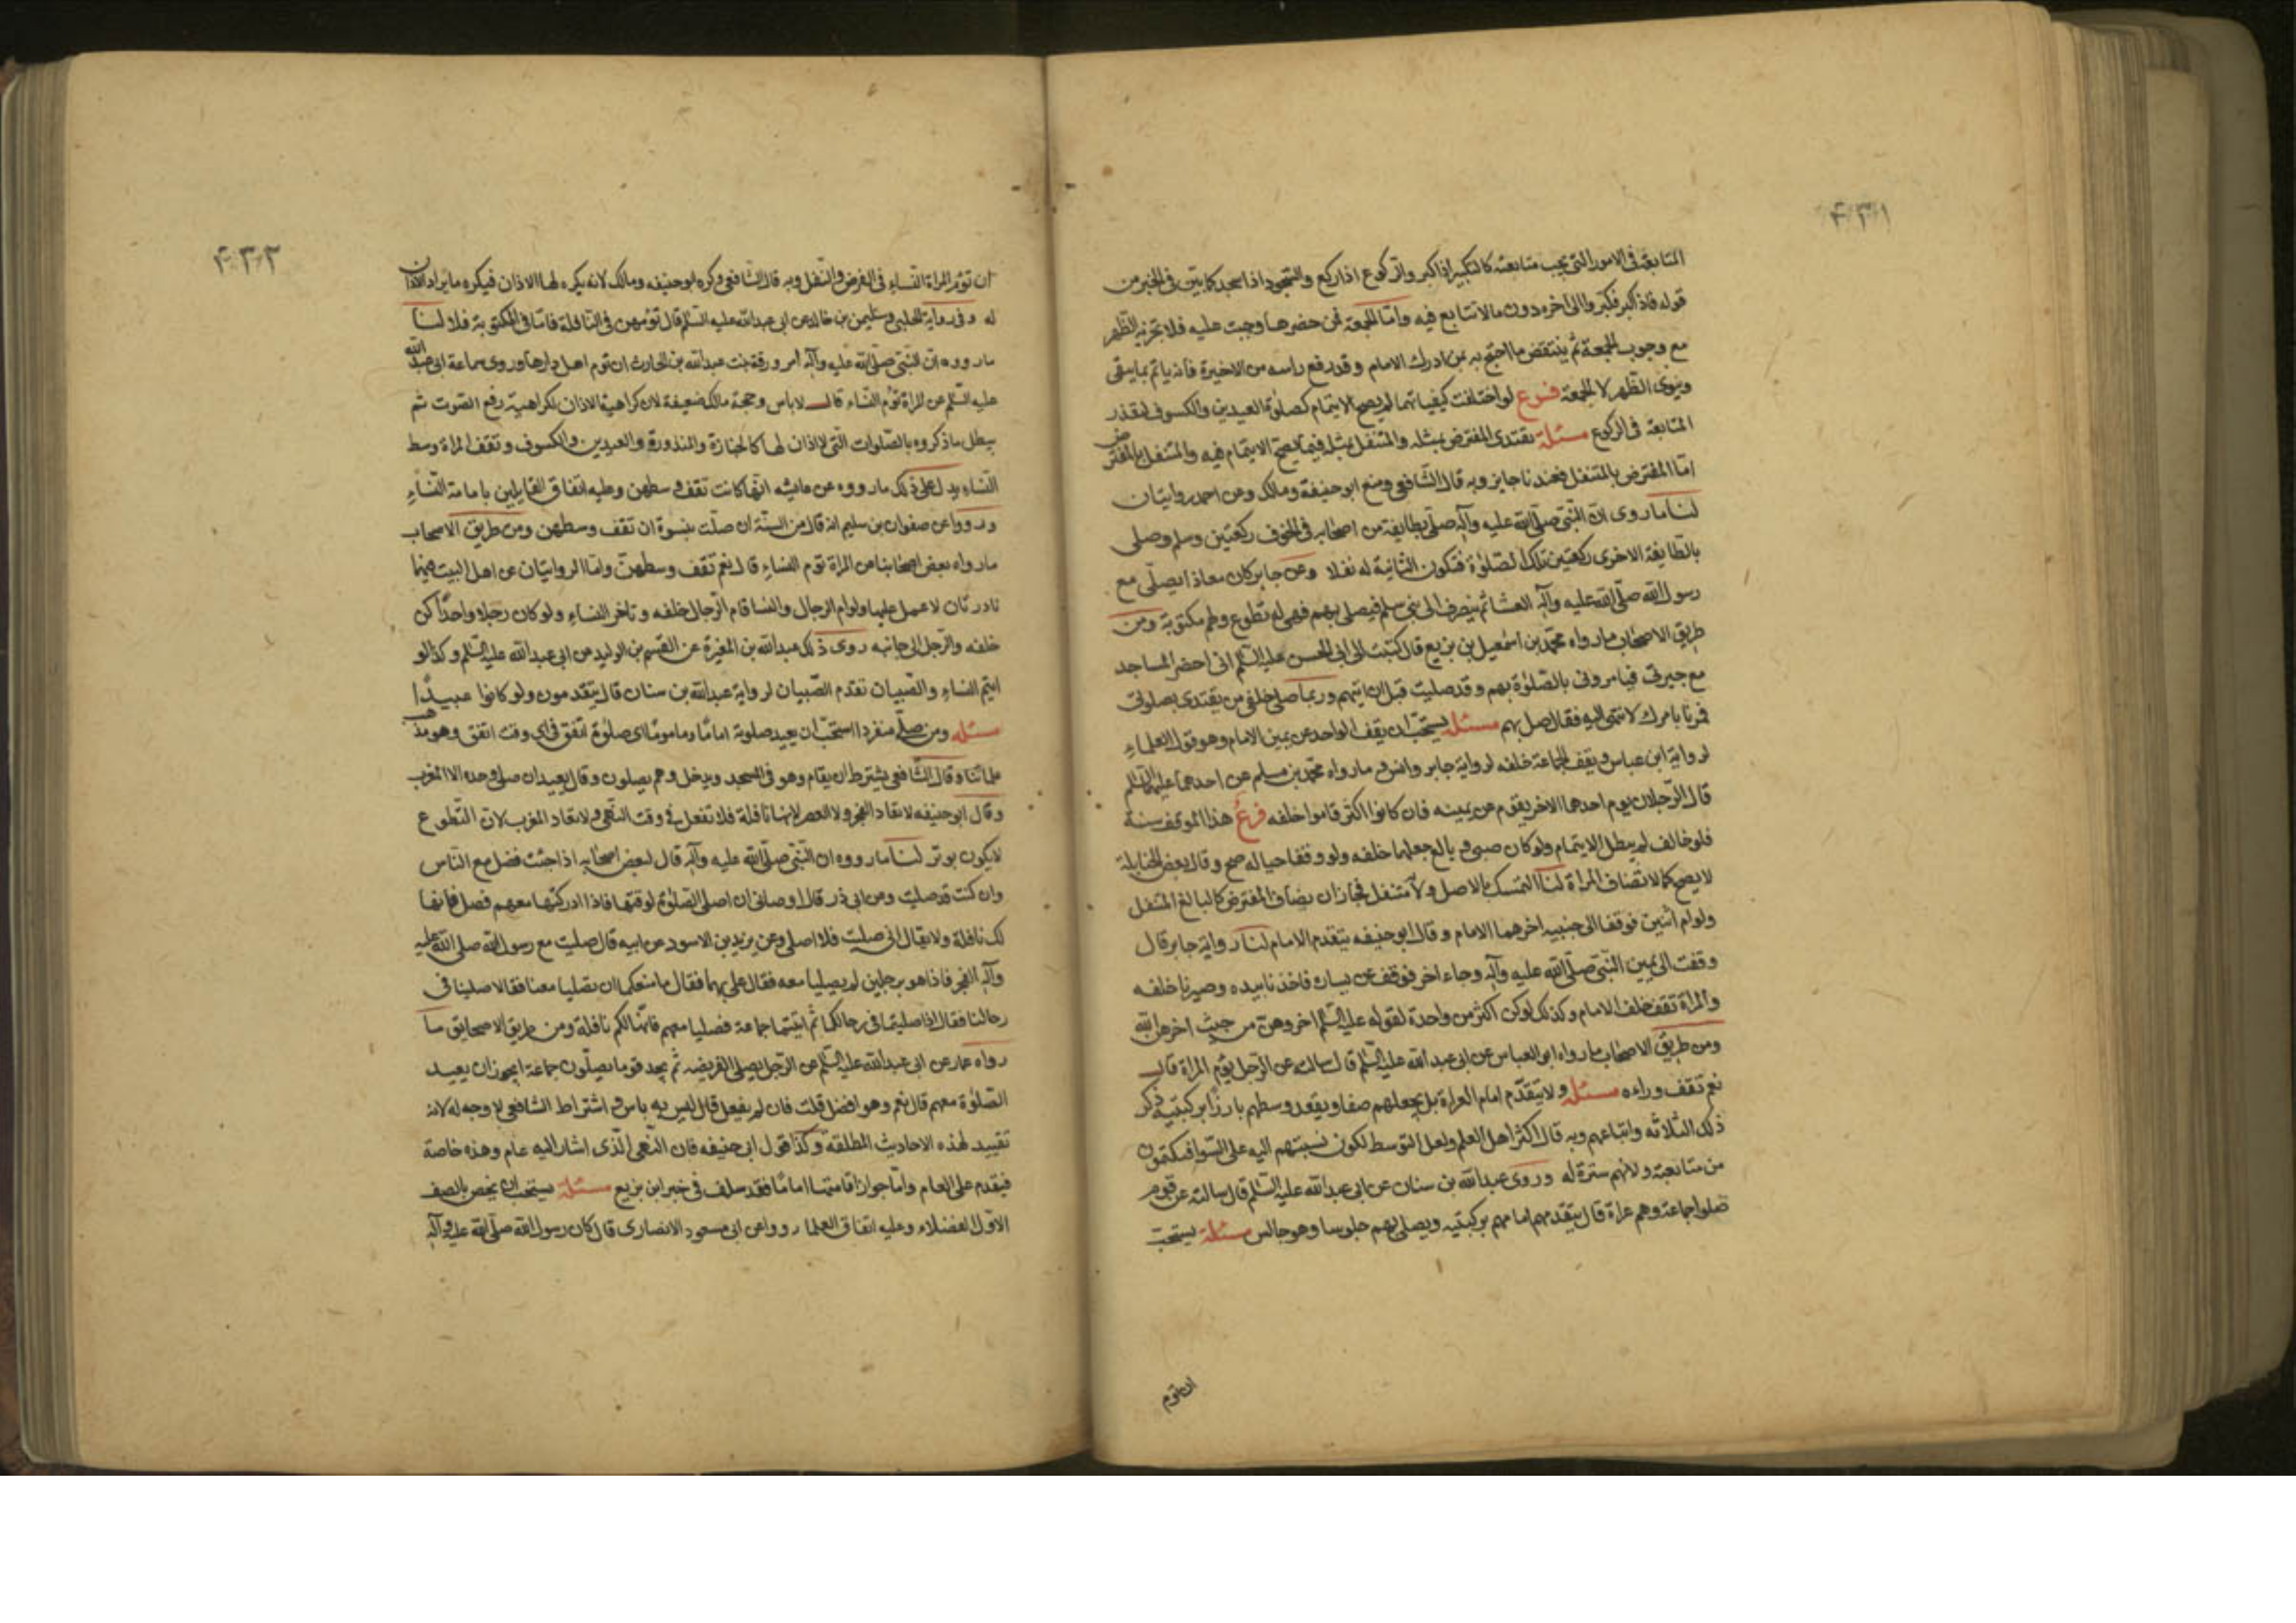 ۴۳۱
المتابعة فى الامور التى يجب متابعته كالتكبير اذا كبر والركوع اذا ركع والسجود اذا سجد كما بين فى الخبر من
قوله فاذا كبر فكبروا الى اخره دون ما لا تتابع فيه واما الجمعة فمن حضرها وجبت عليه فلا تجزيه الظهر
مع وجوب الجمعة ثم ينتقض ما احتج به بمن ادرك الامام وقد رفع راسه من الاخيرة فانه ياتم بما يبقى
وينوى الظهر لا الجمعة فرع لو اختلفت كيفياتهما لم يصح الايتمام كصلوة العيدين والكسوف لتعذر
المتابعة فى الركوع مسئلة يقتدى المفترض بمثله والمتنفل بمثله فيما يصح الايتمام فيه والمتنفل بالمفترض
اما المفترض بالمتنفل فعندنا جايز وبه قال الشافعى ومنع ابو حنيفة ومالك وعن احمد روايتان
لنا ما روى ان النبى صلى الله عليه وآله صلى بطايفة من اصحابه فى الخوف ركعتين وسلم وصلى
بالطايفة الاخرى ركعتين تلك الصلوة فتكون الثانية له نفلا وعن جابر كان معاذ يصلى مع
رسول الله صلى الله عليه وآله العشا ثم ينصرف الى بنى سلم فيصلى بهم فهى له تطوع ولهم مكتوبة ومن
طريق الاصحاب ما رواه محمد بن اسمعيل بن بزيع قال كتبت الى ابى الحسن عليه السلم انى احضر المساجد
مع جيرتى فيامرونى بالصلوة بهم وقد صليت قبل ان اتيهم وربما صلى خلفى من يقتدى بصلوتى
فمرنا بامرك لانتهى اليه فقال صل بهم مسئلة يستحب ان يقف الواحد عن يمين الامام وهو قول العلماء
لرواية ابن عباس ويقف الجماعة خلفه لرواية جابر وانس وما رواه محمد بن مسلم عن احدهما عليهما السلم
قال الرجلان يوم احدهما الاخر يقوم عن يمينه فان كانوا اكثر قاموا خلفه فرع هذا الموقف سنة
فلو خالف لم يبطل الايتمام ولو كان صبى وبالغ جعلهما خلفه ولو وقفا حياله صح وقال بعض الحنابلة
لا يصح كما لا تضاف المراة لنا التمسك بالاصل ولانه متنفل فجاز ان يضاف المفترض كالبالغ المتنفل
ولو ام اثنين فوقفا الى جنبيه اخرهما الامام وقال ابو حنيفه يتقدم الامام لنا رواية جابر قال
وقفت الى يمين النبى صلى الله عليه وآله وجاء اخر فوقف عن يساره فاخذنا بيده وصيرنا خلفه
والمراة تقف خلف الامام وكذلك لو كن اكثر من واحدة لقوله عليه السلم اخروهن من حيث اخرهن الله
ومن طريق الاصحاب ما رواه ابو العباس عن ابى عبد الله عليه السلم قال سالته عن الرجل يوم المراة قال
نعم تقف وراءه مسئلة ولا يتقدم امام العراة بل يجعلهم صفا ويقعد وسطهم بارزا بركبتيه ذكر
ذلك الثلاثه واتباعهم وبه قال اكثر اهل العلم ولعل التوسط لكون نسبتهم اليه على السوا فيتمكنون
من متابعته ولانهم سترة له وروى عبد الله بن سنان عن ابى عبد الله عليه السلم قال سالته عن قوم
صلوا جماعة وهم عراة قال يتقدمهم امامهم بركبتيه ويصلى بهم جلوسا وهو جالس مسئلة يستحب
ان تؤم
۴۳۲
ان تؤم المراة النساء فى الفرض والنفل وبه قال الشافعى وكره ابو حنيفه ومالك لانه يكره لها الاذان فيكره ما يراد الاذان
له وفى رواية الحلبى وسليمن بن خالد عن ابى عبد الله عليه السلم قال تؤمهن فى النافلة فاما فى المكتوبة فلا لنا
ما رووه ان النبى صلى الله عليه وآله امر ورقة بنت عبد الله بن الحارث ان تؤم اهل دارها وروى سماعة ابى عبد الله
عليه السلم عن المراة تؤم النساء قال لا باس وحجة مالك ضعيفة لان كراهية الاذان لكراهية رفع الصوت ثم
يبطل ما ذكروه بالصلوات التى لا اذان لها كالجنازة والمنذورة والعيدين والكسوف وتقف المراة وسط
النساء يدل على ذلك ما رووه عن عايشه انها كانت تقف وسطهن وعليه اتفاق القايلين بامامة النساء
ورووا عن صفوان بن سليم انه قال من السنة ان صلت بنسوة ان تقف وسطهن ومن طريق الاصحاب
ما رواه بعض اصحابنا عن المراة تؤم النساء قال نعم تقف وسطهن واما الروايتان عن اهل البيت فهما
نادرتان لا عمل عليها ولو ام الرجال والنسا قام الرجال خلفه وتاخر النساء ولو كان رجلا واحدا كن
خلفه والرجل الى جانبه روى ذلك عبد الله بن المغيرة عن القسم بن الوليد عن ابى عبد الله عليه السلم وكذا لو
ايتم النساء والصبيان تقدم الصبيان لرواية عبد الله بن سنان قال يتقدمون ولو كانوا عبيدا
مسئلة ومن صلى منفردا استحب ان يعيد صلوته اماما وماموما اى صلوة اتفق فى اى وقت اتفق وهو مذهب
علمائنا وقال الشافعى يشترط ان يقام وهو فى المسجد ويدخل وهم يصلون وقال يعيد ان صلى وحده الا المغرب
وقال ابو حنيفه لا تعاد الفجر ولا العصر لانها نافلة فلا تفعل فى وقت النهى ولا تعاد المغرب لان التطوع
لا يكون بوتر لنا ما رووه ان النبى صلى الله عليه وآله قال لبعض اصحابه اذا جئت فصل مع الناس
وان كنت قد صليت وعن ابى ذر قال اوصانى ان اصلى الصلوة لوقتها فاذا ادركتها معهم فصل فانها
لك نافلة ولا تقال انى صليت فلا اصلى وعن يزيد بن الاسود عن ابيه قال صليت مع رسول الله صلى الله عليه
وآله الفجر فاذا هو برجلين لم يصليا معه فقال على بهما فقال ما منعكما ان تصليا معنا فقالا صلينا فى
رحالنا فقال اذا صليتما فى رحالكما ثم اتيتما جماعة فصليا معهم فانها لكم نافلة ومن طريق الاصحاب ما
رواه عمار عن ابى عبد الله عليه السلم عن الرجل يصلى الفريضة ثم يجد قوما يصلون جماعة ايجوز ان يعيد
الصلوة معهم قال نعم وهو افضل قلت فان لم يفعل قال ليس به باس واشتراط الشافعى لا وجه له لانه
تقييد لهذه الاحاديث المطلقة وكذا قول ابى حنيفه فان النهى الذى اشار اليه عام وهذه خاصة
فيقدم على العام واما جواز اقامتها اماما فقد سلف فى خبر ابن بزيع مسئلة يستحب ان يخص بالصف
الاول الفضلاء وعليه اتفاق العلما رووا عن ابى مسعود الانصارى قال كان رسول الله صلى الله عليه وآله